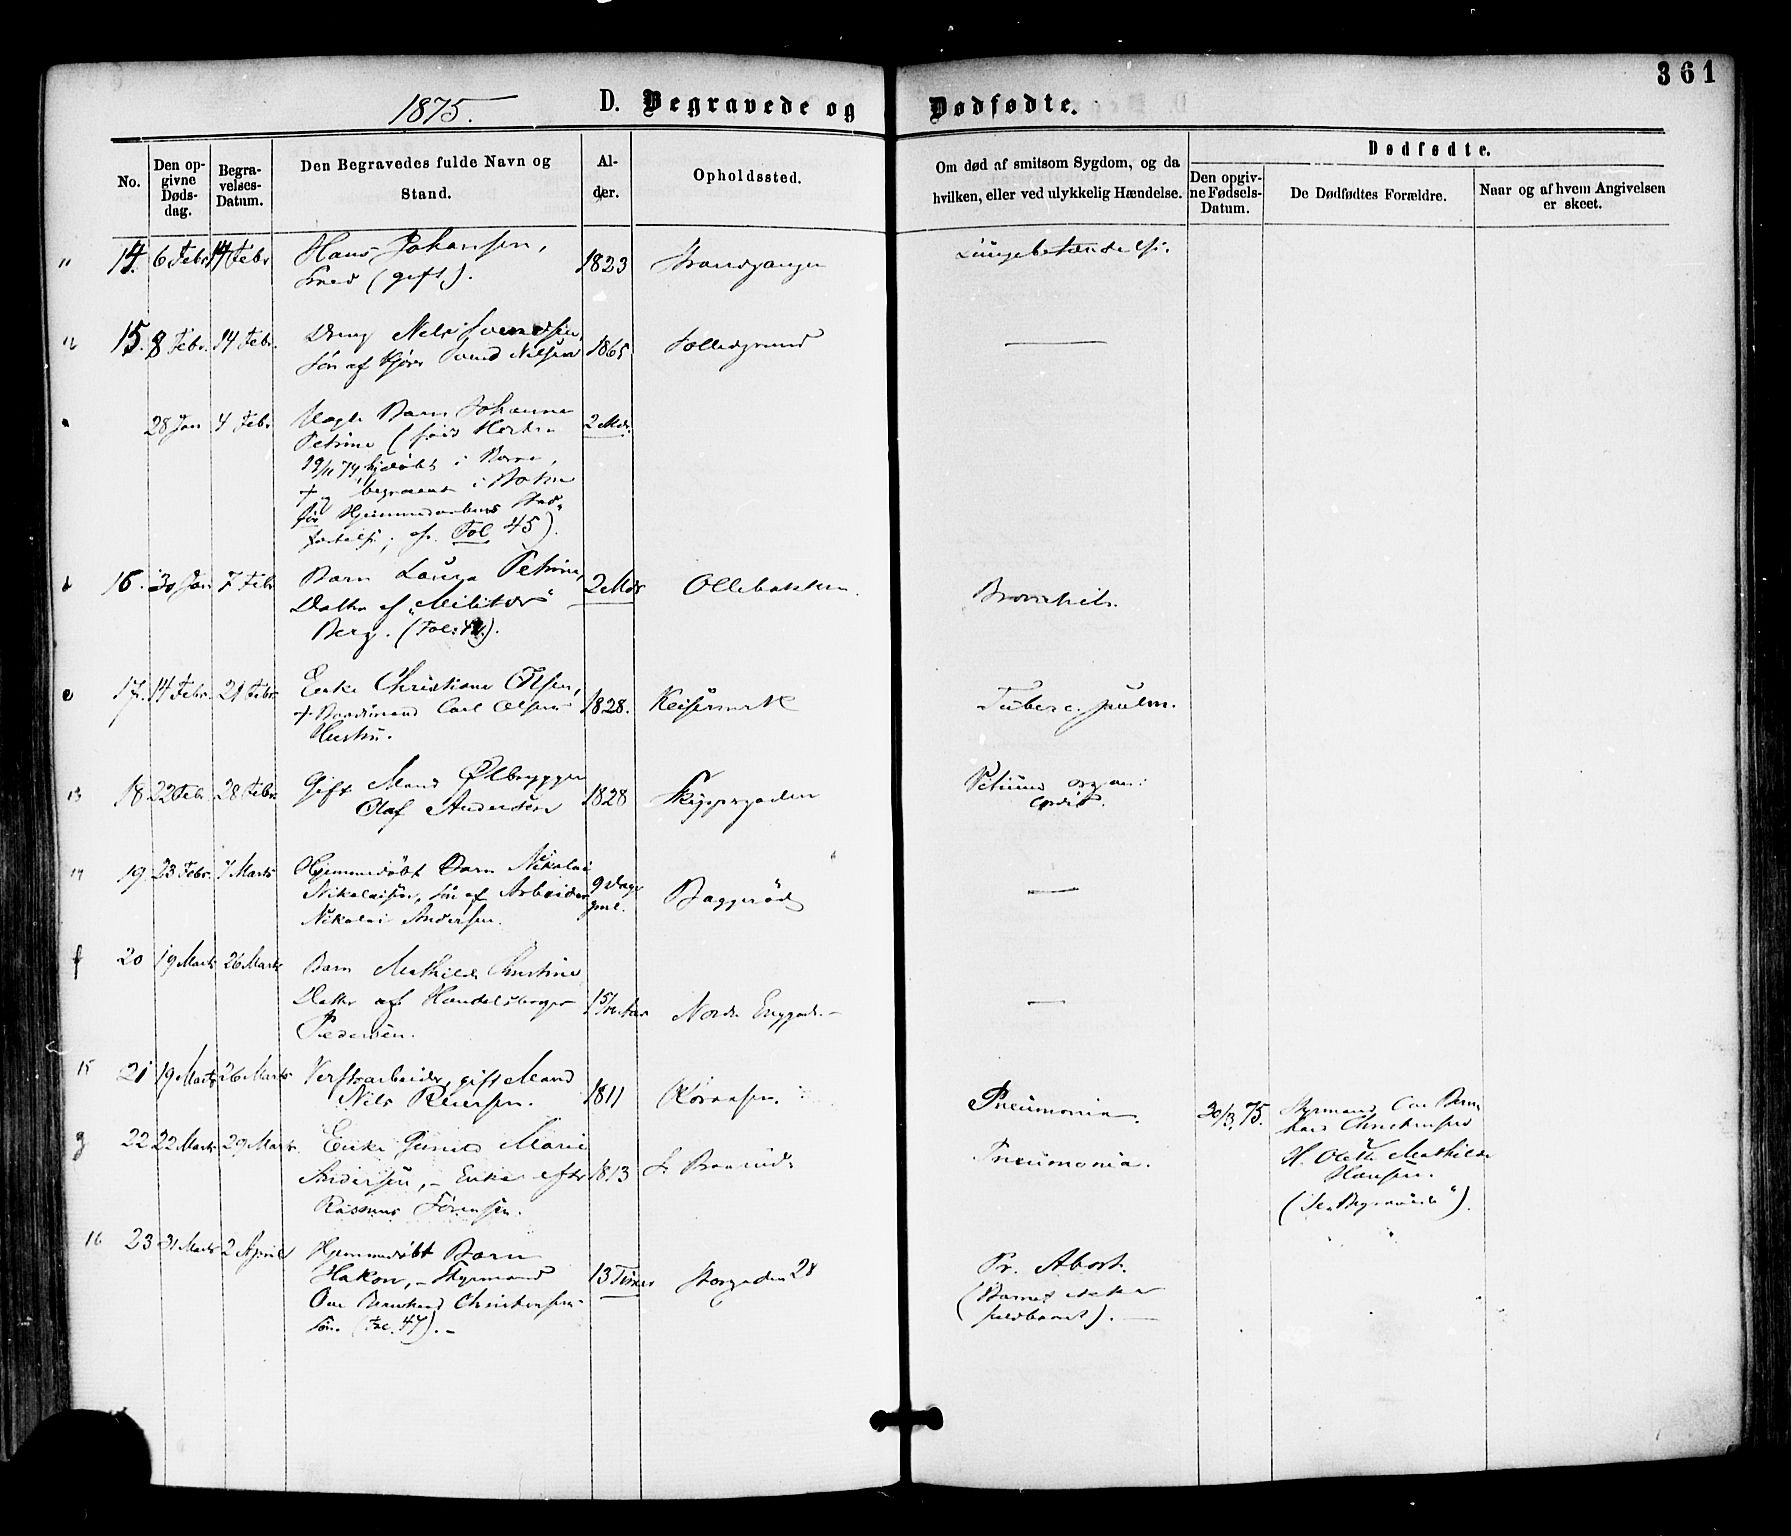 361
1875.
D. Begravede og Dødfødte.
No.
Den opgivne Dødsdag.
Begravelses-Datum.
Den Begravedes fulde Navn og Stand.
Alder.
Opholdssted.
Om død af smitsom Sygdom, og da hvilken, eller ved ulykkelig Hændelse.
Dødfødte.
Den opgivne Fødsels-Datum.
De Dødfødtes Forældre.
Naar og af hvem Angivelsen er skeet.
11 14. 6 Febr 14 Febr Hans Johansen, 1823 Lungebetændelse.
Smed (gift).
12 15. 8 Febr. 14 Febr. Dreng Nels Svendsen, 1865 Sollisgrund
Søn af Svend Nilsen
28 Jan 4 Febr Barn Johanne 2 Mdr.
Petrine (født Horten
19/11 74, hjdøbt i Borre,
begravet i
for Hjemmedaabens Stad-
fæstelse; cfr. Fol 45).
b 16. 30 Jan 7 Febr Barn Laura Petrine, 2 Mdr Ollebakken. Bronchit.
Datter af "Militær"
Berg. (Fol:
e 17. 14 Febr. 21 Febr. Enke Christiane Olsen, 1828. Keisermark Tuberc. pulm.
Carl Olsens
Hustru.
13 18 22 Febr. 28 Febr. Gift Mand Ølbrygger 1828 Skippergaden Vitium organ:
Olaf Andersen cordis.
14 19 23 Febr. 7 Marts Hjemmedøbt Barn Nikolai 9 Dage Baggerød
Nikolaisen, Søn af Arbeider gml.
Nikolai Andersen.
f 20 19 Marts 26 Marts Barn Mathilde Christine
Datter af Handelsborger Nordre Enggade
Pedersen.
15 21 19 Marts 26 Marts Verftsarbeider, gift Mand 1811 Pneumonia. 30/3, 75. Styrmand Ove Bern-
Nils Reiersen. hard Christensen
g 22 22 Marts 29 Marts. Enke Gunild Marie 1813 Pneumonia. H. Olette Mathilde
Andersen, - Enke efter Hansen.
Rasmus Sørensen. (Se "Begravede").
16 23 31 Marts 2 April Hjemmedøbt Barn Pr. Abort.
Hakon, - Styrmand 13 Timer Storgaden 28 (Barnet ikke
Ove Bernhard Christensens fuldbaaret).
Søn. (Fol. 47).